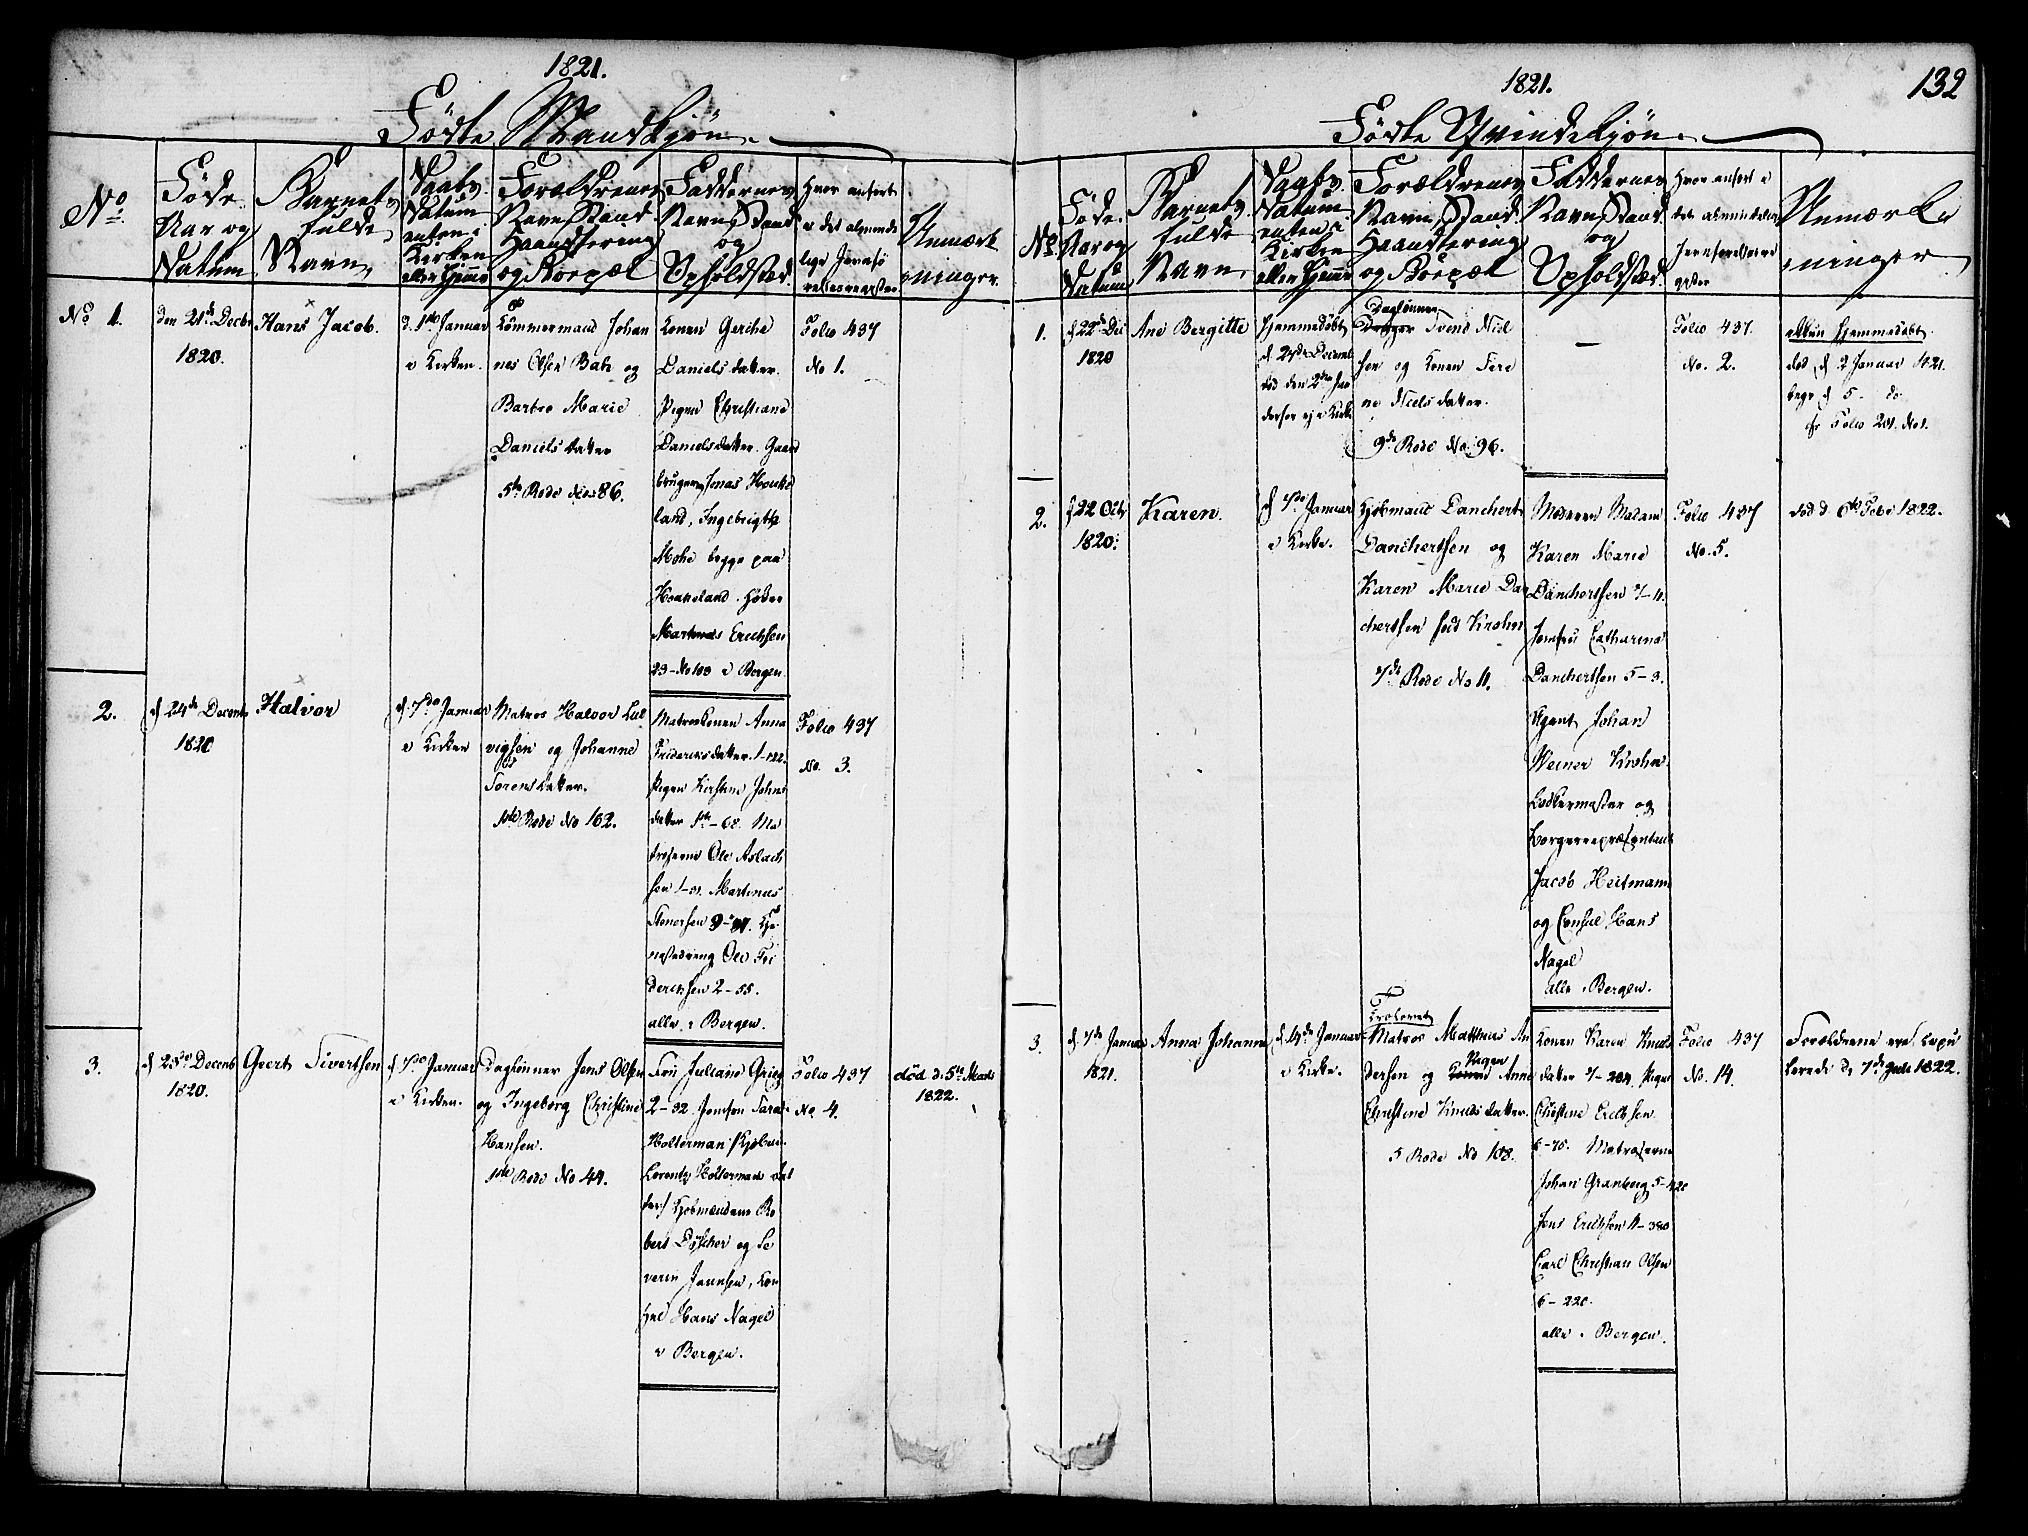 1821.
Fødte Mandkjøn.
No
Føde
Aar og
Datum
Barnets
fulde
Navn
Daabs
Datum
enten i
Kirken
eller Hjemme
Forældrenes
Navn, Stand
Haandtering
og Boepæl
Faddernes
Navn, Stand
og
Opholdsted.
Hvor anført
i det alminde
lige Jevnfø
relsesregister
Anmærk
ninger.
No 1.
den 21de Decbr
1820.
Hans Jacob.
d. 1ste Januar
i Kirken.
Tømmermand Johan
nes Olsen Bak og
Bartro Marie
Daniels datter
5te Rode No 86.
Konen Gerche
Danielsdatter.
Pigen Christiane
Danielsdatter. Gaard
brugerne Jonas Houke
land, Ingebrigth
Mohe begge paa
Houkeland.
Martinus Erichsen
23-No 100 i Bergen
Folio 437
No 1.
2.
d 24de Decemb
1820
Halvor
d. 7de Januar
i Kirken
Matros Halvor Lud
vigsen og Johanne
Sørensdatter.
1ste Rode No 162.
Matroskonen Anna
Frideriksdatter. 1-122.
Pigen Kirstine Johns
datter 1te-68. Ma
troserne Ole Aslach
sen 1-31. Martinus
Stenersen 9-97.
nestedreng Ole Fri
derichsen 2-55.
alle i Bergen.
Folio 437
No. 3.
3.
d 25de Decemb
1820.
Geert Sivertsen
d 7de Januar
i Kirken.
Dagleiner Jens Olsen
og Ingeborg Christine
Hansen.
1ste Rode No 44.
Fru Juliane Grieg
2-32. Jomfru Sara
Holterman /Kjøbm.
Lorentz Holtermans dat
ter/ Kjøbmændene Ro
bert Døscher og Se
verin Jannsen, Con
sul Hans Nagel
i Bergen.
Folio 437
No 4.
død d. 5te Marts
1822.
1821.
132
Fødte Qvindekjøn.
No
Føde
Aar og
Datum
Barnets
fulde
Navn
Daabs
Datum
enten i
Kirken
eller Hjemme
Forældrenes
Navn, Stand
Haandtering
og Boepæl
Faddernes
Navn, Stand
og
Opholdsted.
Hvor anført i
det almindelige
Jevnførelsesre
gister
Anmærk
ninger
1.
d 22de Dec
1820
Ane Bergitte
Hjemmedøbt
d. 24de Decemb
død den 2den Jan
derfor ej i Kirke
Dagleiner
Svend Niel
sen og Konen Sere
ne Nielsdatter.
9de Rode No. 96.
—
Folio 437.
No. 2.
Hjemmedøbt.
død d 2 Januar 1821.
begr d 5. do
cfr Folio 201. No 1.
2.
d 22 Octr
1820.
Karen.
d 7de Januar
i Kirke.
Kjøbmand Danchert
Danchertsen og
Karen Marie Dan
chertsen fød Krohn
7de Rode No 11.
Moderen Madam
Karen Marie
Danchertsen 7-11.
Jomfru Catharina
Danchertsen 5-3.
Agent Johan
Werner Krohn.
Lodtermester og
borgerrepræsentant
Jacob Heitmann
og Consul Hans
Nagel
alle i Bergen.
Folio 437
No. 5.
død d 6te Febr 1822.
3.
d. 7de Januar
1821.
Anna Johanna
d. 14de Januar
i Kirke.
Trolovet
Matros Matthias An
dersen og Pigen Anne
Christine Knudsdatter.
5 Rode No 108.
Konen Karen Knuds
datter 7-204. Pigen
Christine Erichsen
6-75. Matroserne
Johan Granberg 5-120
Jens Erichsen 11-380
Carl Christian Olsen
6-220.
alle i Bergen.
Folio 437
No. 14.
Forældrene ere Copu
lerede d. 7de Juli 1822.